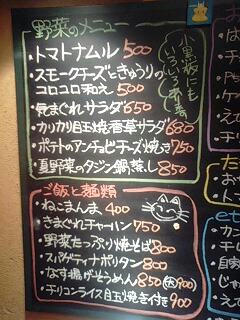 野菜のメニュー
・トマトナムル 500
・スモークチーズときゅうりの
コロコロ和え 500
・気まぐれサラダ 650
・カリカリ目玉焼香草サラダ 680
・ポテトのアンチョビチーズ焼き 750
・夏野菜のタジン鍋蒸し 850
小黒板にも
いろいろ有
ご飯と麺類
・ねこまんま 400
・きまぐれチャーハン 750
・野菜たっぷり焼そば 800
・スパゲティナポリタン 800
・なす揚げそうめん 850 (大)900
・チリコンライス目玉焼き付き 900